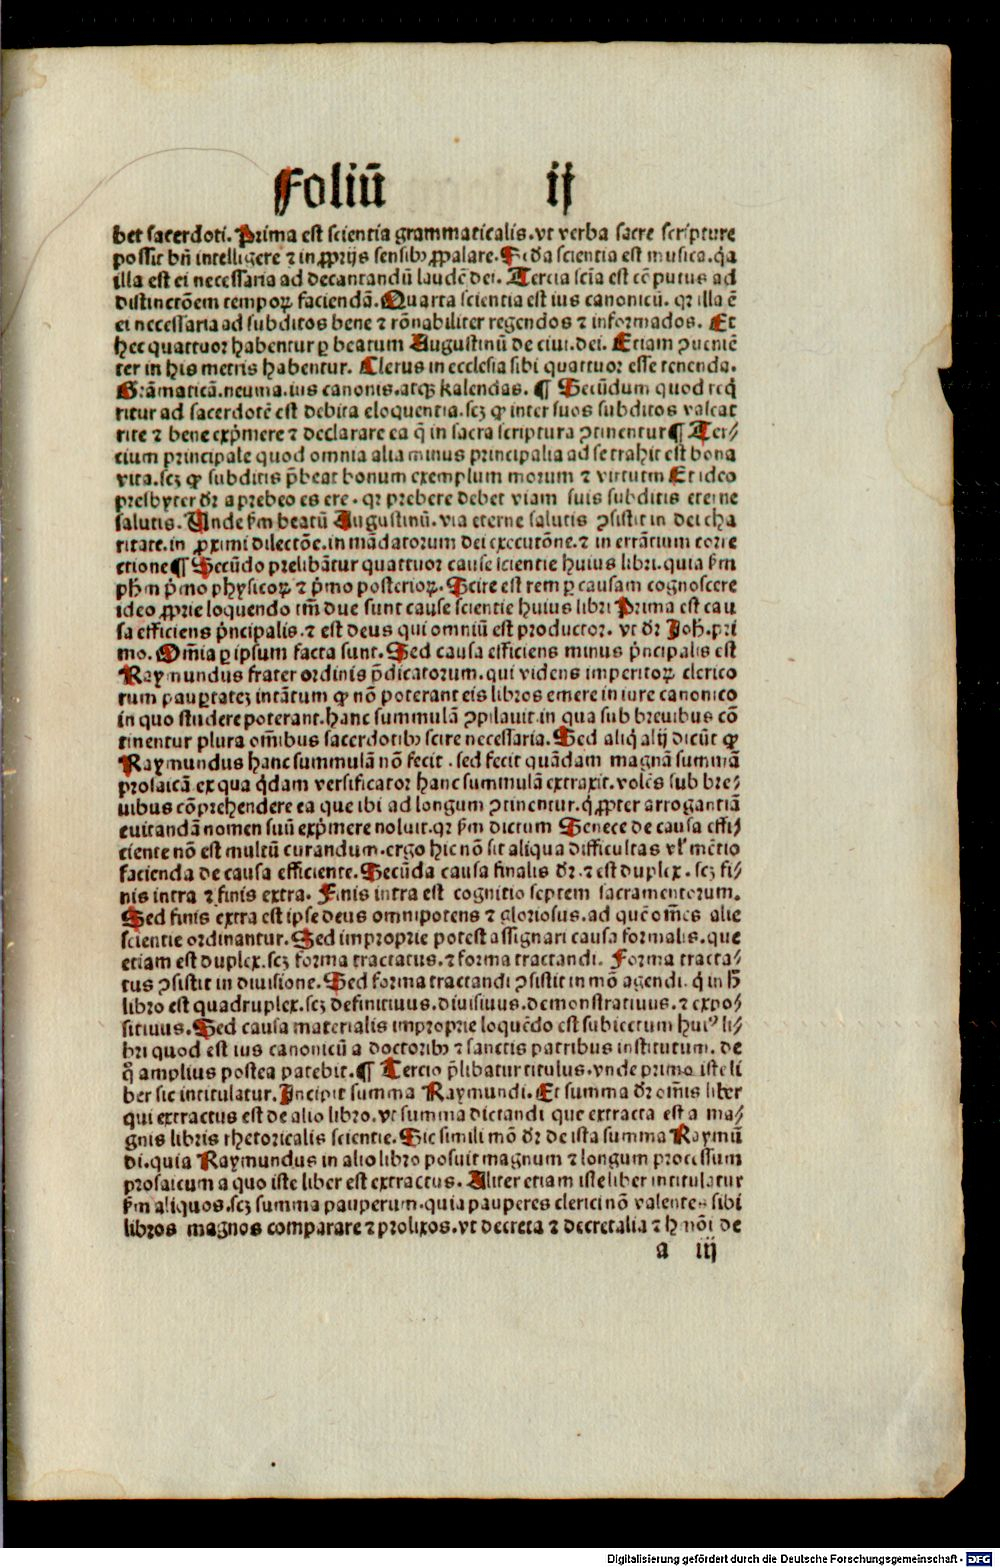 Foliū ij
bet sacerdoti. Prima est scientia grammaticalis. vt verba sacre scripture
possit bn̄ intelligere ⁊ in ꝓprijs sensibꝰ ꝓpalare. Scd̄a scientia est musica. q̄a
illa est ei necessaria ad decantandū laudē dei. Tercia scīa est cōputus ad
distinctōem tempoꝝ faciendā. Quarta scientia est ius canonicū. qꝛ illa ē
ei necessaria ad subditos bene ⁊ rōnabiliter regendos ⁊ informādos. Et
hec quattuor habentur ꝑ beatum Augustinū de ciui. dei. Etiam ꝯueniē
ter in his metris habentur. Clerus in ecclesia sibi quattuor esse tenenda.
Grāmaticā. neuma. ius canonis. atqꝫ kalendas. ¶ Secūdum quod req̄
ritur ad sacerdotē est debita eloquentia. scꝫ ꝙ inter suos subditos valeat
rite ⁊ bene exp̄mere ⁊ declarare ea q̄ in sacra scriptura ꝯtinentur ¶ Ter⸗
cium principale quod omnia alia minus principalia ad se trahit est bona
vita. scꝫ ꝙ subditis p̄beat bonum exemplum morum ⁊ virtutem Et ideo
presbyter dr̄ a prebeo es ere. qꝛ prebere debet viam suis subditis eterne
salutis. Unde ẜm beatū Augustinū. via eterne salutis ꝯsistit in dei cha
ritate. in ꝓximi dilectōe. in mādatorum dei executōne. ⁊ in errātium corre
ctione ¶ Secūdo prelibātur quattuor cause scientie huius libri. quia ẜm
ph̄m p̄mo physicoꝝ ⁊ p̄mo posterioꝝ. Scire est rem ꝑ causam cognoscere
ideo ꝓprie loquendo tm̄ due sunt cause scientie huius libri Prima est cau
sa efficiens p̄ncipalis. ⁊ est deus qui omniū est productor. vt dr̄ Joh̄. pri
mo. Om̄ia ꝑ ipsum facta sunt. Sed causa efficiens minus p̄ncipalis est
Raymundus frater ordinis p̄dicatorum. qui videns imperitoꝝ clerico
rum pauꝑtateꝫ intātum ꝙ nō poterant eis libros emere in iure canonico
in quo studere poterant. hanc summulā ꝯpilauit. in qua sub breuibus cō
tinentur plura om̄ibus sacerdotibꝰ scire necessaria. Sed aliq̄ alij dicūt ꝙ
Raymundus hanc summulā nō fecit. sed fecit quādam magnā summā
prosaicā. ex qua q̄dam versificator hanc summulā extraxit. volēs sub bre⸗
uibus cōprehendere ea que ibi ad longum ꝯtinentur. q̄ ꝓpter arrogantiā
euitandā nomen suū exp̄mere noluit. qꝛ ẜm dictum Senece de causa effi⸗
ciente nō est multū curandum. ergo hic nō sit aliqua difficultas vl̓ mētio
facienda de causa efficiente. Secūda causa finalis dr̄. ⁊ est duplex. scꝫ fi⸗
nis intra ⁊ finis extra. Finis intra est cognitio septem sacramentorum.
Sed finis extra est ipse deus omnipotens ⁊ gloriosus. ad quē om̄es alie
scientie ordinantur. Sed improprie potest assignari causa formalis. que
etiam est duplex. scꝫ forma tractatus. ⁊ forma tractandi. Forma tracta⸗
tus ꝯsistit in diuisione. Sed forma tractandi ꝯsistit in mō agendi. q̄ in h̄
libro est quadruplex. scꝫ definitiuus. diuisiuus. demonstratiuus. ⁊ expo⸗
sitiuus. Sed causa materialis improprie loquēdo est subiectum huiꝰ li⸗
bri quod est ius canonicū a doctoribꝰ ⁊ sanctis patribus institutum. de
q̄ amplius postea patebit. ¶ Tercio p̄libatur titulus. vnde primo iste li
ber sic intitulatur. Incipit summa Raymundi. Et summa dr̄ om̄is liber
qui extractus est de alio libro. vt summa dictandi que extracta est a ma⸗
gnis libris rhetoricalis scientie. Sic simili mō dr̄ de ista summa Raymū
di. quia Raymundus in alio libro posuit magnum ⁊ longum processum
prosaicum a quo iste liber est extractus. Aliter etiam iste liber intitulatur
ẜm aliquos. scꝫ summa pauperum. quia pauperes clerici nō valentes sibi
libros magnos comparare ⁊ prolixos. vt decreta ⁊ decretalia ⁊ hmōi de
a iij
Digitalisierung gefördert durch die Deutsche Forschungsgemeinschaft - DFG